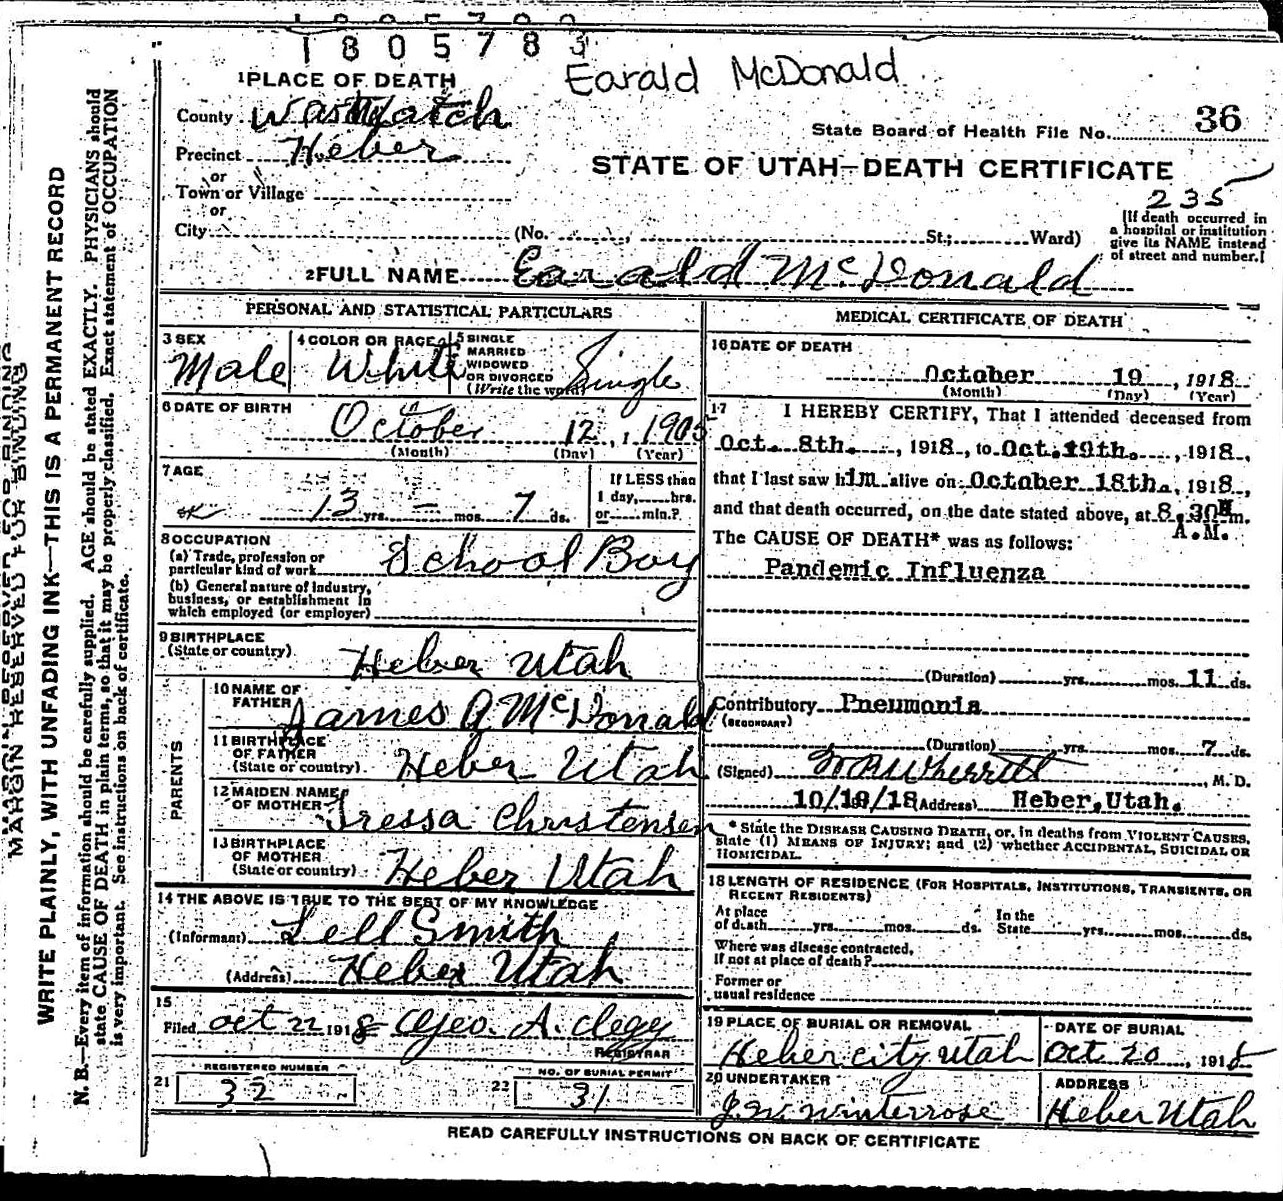 1805783
Earald McDonald
1 PLACE OF DEATH
County Wasatch
State Board of Health File No. 36
Precinct Heber
STATE OF UTAH—DEATH CERTIFICATE
or
Town or Village
235
or
City (No. St.; Ward)
(If death occurred in
a hospital or institution
give its NAME instead
of street and number.)
2 FULL NAME Earald McDonald
PERSONAL AND STATISTICAL PARTICULARS
3 SEX
Male
4 COLOR OR RACE
White
5 SINGLE
MARRIED
WIDOWED
OR DIVORCED
(Write the word)
Single
6 DATE OF BIRTH
October 12, 1905
(Month) (Day) (Year)
7 AGE
13 yrs. — mos. 7 ds.
If LESS than
1 day, hrs.
or min.?
8 OCCUPATION
(a) Trade, profession or
particular kind of work
School Boy
(b) General nature of industry,
business, or establishment in
which employed (or employer)
9 BIRTHPLACE
(State or country)
Heber Utah
PARENTS
10 NAME OF
FATHER
James A McDonald
11 BIRTHPLACE
OF FATHER
(State or country)
Heber Utah
12 MAIDEN NAME
OF MOTHER
Tressa Christensen
13 BIRTHPLACE
OF MOTHER
(State or country)
Heber Utah
14 THE ABOVE IS TRUE TO THE BEST OF MY KNOWLEDGE
(Informant) Lell Smith
(Address) Heber Utah
15
Filed Oct 22 1918 Geo. A. Clegg
REGISTRAR
REGISTERED NUMBER
21 32
NO. OF BURIAL PERMIT
22 31
MEDICAL CERTIFICATE OF DEATH
16 DATE OF DEATH
October 19, 1918
(Month) (Day) (Year)
17 I HEREBY CERTIFY, That I attended deceased from
Oct. 8th., 1918, to Oct. 19th., 1918,
that I last saw him alive on October 18th., 1918,
and that death occurred, on the date stated above, at 8.30 m.
A.M.
The CAUSE OF DEATH* was as follows:
Pandemic Influenza
(Duration) yrs. mos. 11 ds.
Contributory Pneumonia
(SECONDARY)
(Duration) yrs. mos. 7 ds.
(Signed) Wherritt M. D.
10/19/18 (Address) Heber, Utah.
* State the DISEASE CAUSING DEATH, or, in deaths from VIOLENT CAUSES,
state (1) MEANS OF INJURY; and (2) whether ACCIDENTAL, SUICIDAL OR
HOMICIDAL.
18 LENGTH OF RESIDENCE (FOR HOSPITALS, INSTITUTIONS, TRANSIENTS, OR
RECENT RESIDENTS)
At place
of death yrs. mos. ds.
In the
State yrs. mos. ds.
Where was disease contracted,
If not at place of death?
Former or
usual residence
19 PLACE OF BURIAL OR REMOVAL
Heber city Utah
DATE OF BURIAL
Oct 20, 1918
20 UNDERTAKER
J. W. Winterrose
ADDRESS
Heber Utah
READ CAREFULLY INSTRUCTIONS ON BACK OF CERTIFICATE
MARGIN RESERVED FOR BINDING
WRITE PLAINLY, WITH UNFADING INK—THIS IS A PERMANENT RECORD
N. B.—Every item of information should be carefully supplied. AGE should be stated EXACTLY. PHYSICIANS should
state CAUSE OF DEATH in plain terms, so that it may be properly classified. Exact statement of OCCUPATION
is very important. See instructions on back of certificate.